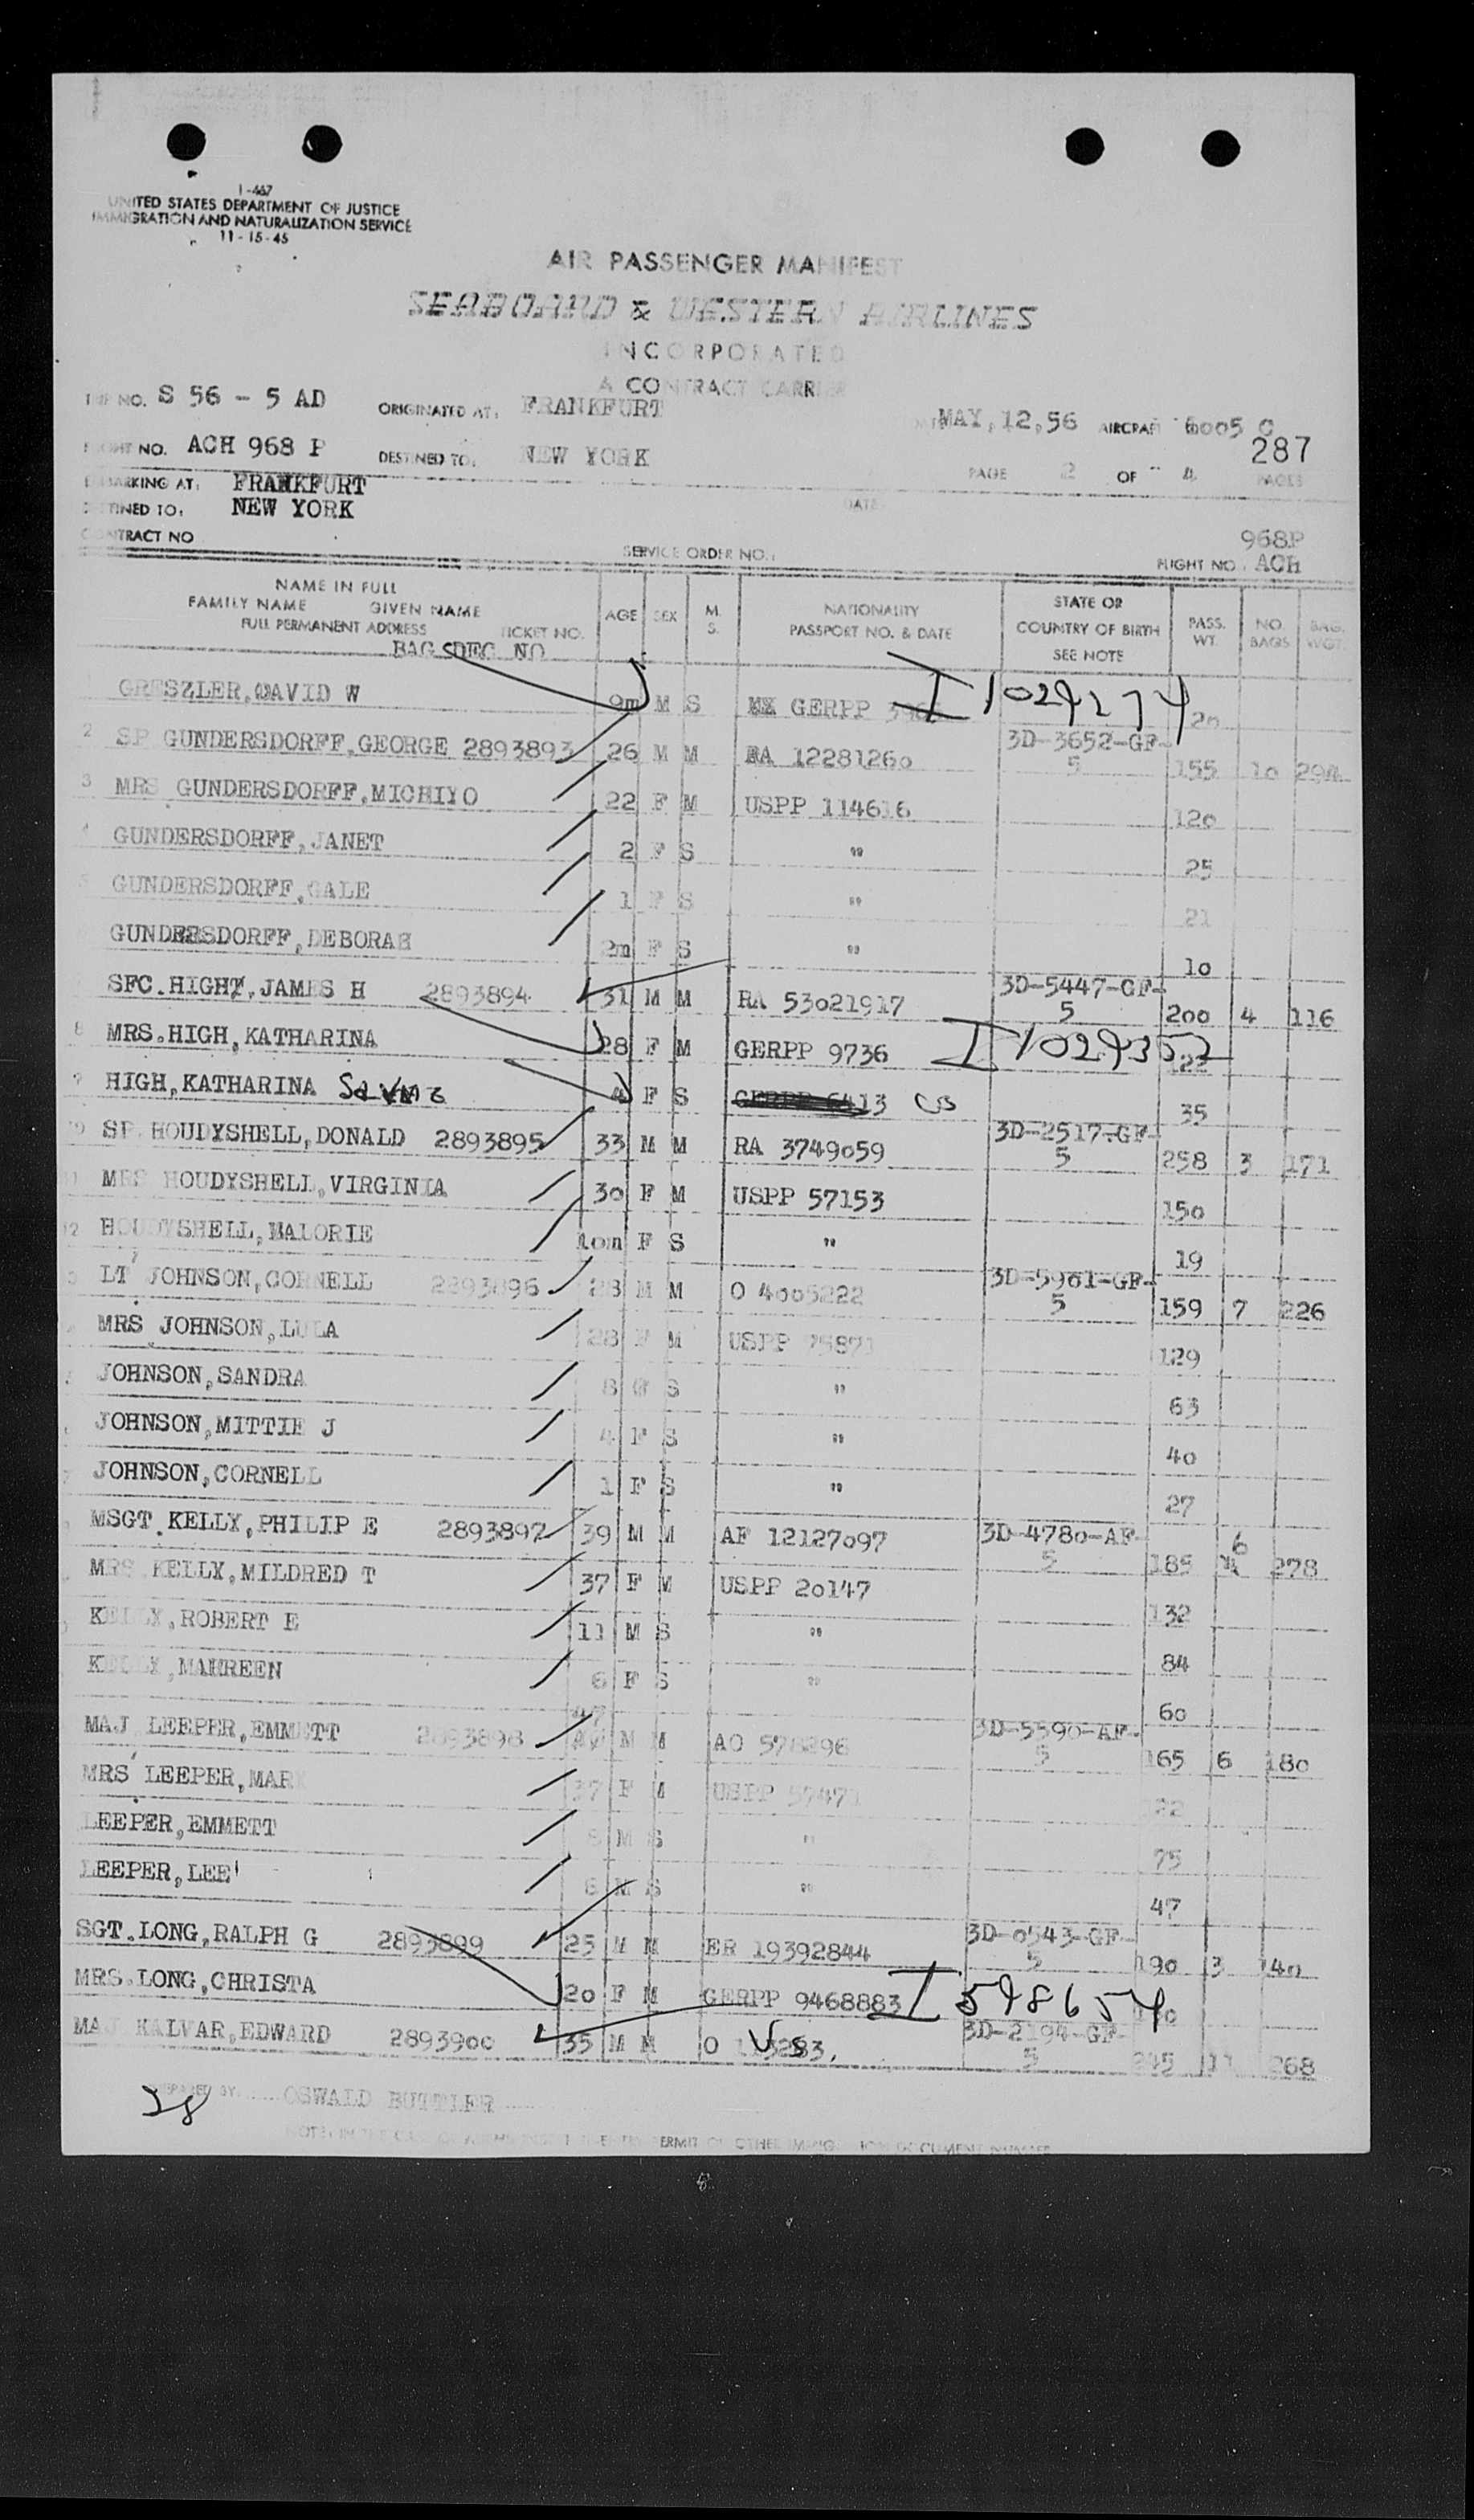 I-467
UNITED STATES DEPARTMENT OF JUSTICE
IMMIGRATION AND NATURALIZATION SERVICE
11-15-45
AIR PASSENGER MANIFEST
SEABOARD & WESTERN AIRLINES
INCORPORATED
A CONTRACT CARRIER
NO. S 56 - 5 AD ORIGINATED AT: FRANKFURT MAY, 12,56 AIRCRAFT 6005 C
287
FLIGHT NO. ACH 968 P DESTINED TO: NEW YORK PAGE 2 OF 4 PAGES
EMBARKING AT: FRANKFURT
DESTINED TO: NEW YORK DATE
CONTRACT NO SERVICE ORDER NO.: FLIGHT NO. ACH 968P
NAME IN FULL
FAMILY NAME GIVEN NAME
FULL PERMANENT ADDRESS TICKET NO.
BAG SDEC NO
AGE SEX M. S. NATIONALITY PASSPORT NO. & DATE STATE OR COUNTRY OF BIRTH SEE NOTE PASS. WT. NO. BAGS BAG. WGT.
GRESZLER, DAVID W 9m M S GERPP I 1029274 20
2 SP GUNDERSDORFF, GEORGE 2893893 26 M M RA 12281260 3D-3652-GF-5 155 10 294
3 MRS GUNDERSDORFF, MICHIYO 22 F M USPP 114616 120
4 GUNDERSDORFF, JANET 2 F S " 25
5 GUNDERSDORFF, GALE 1 F S " 21
GUNDERSDORFF, DEBORAH 2m F S " 10
SFC. HIGHT, JAMES H 2893894 31 M M RA 53021917 3D-5447-GF-5 200 4 116
8 MRS. HIGH, KATHARINA 28 F M GERPP 9736 I 1029352 122
9 HIGH, KATHARINA 4 F S GERPP 6413 US 35
10 SP HOUDYSHELL, DONALD 2893895 33 M M RA 3749059 3D-2517-GF-5 258 3 171
11 MRS HOUDYSHELL, VIRGINIA 30 F M USPP 57153 150
12 HOUDYSHELL, MALORIE 10m F S " 19
LT JOHNSON, CORNELL 2893896 28 M M O 4005222 3D-5961-GF-5 159 7 226
MRS JOHNSON, LULA 28 F M USPP 129
JOHNSON, SANDRA 8 S " 63
JOHNSON, MITTIE J 4 F S " 40
JOHNSON, CORNELL 1 F S " 27
MSGT. KELLY, PHILIP E 2893897 39 M M AF 12127097 3D-4780-AF-5 185 6 278
MRS KELLY, MILDRED T 37 F M USPP 20147 132
KELLY, ROBERT E 11 M S " 84
KELLY, MAUREEN 6 F S " 60
MAJ LEEPER, EMMETT 2893898 47 M M AO 578296 3D-5590-AF-5 165 6 180
MRS LEEPER, MARY 37 F M USPP 122
LEEPER, EMMETT M S " 75
LEEPER, LEE 6 M S " 47
SGT. LONG, RALPH G 2893899 25 M M ER 19392844 3D-0543-GF-5 190 3 140
MRS. LONG, CHRISTA 20 F M GERPP 9468883 I 598654
MAJ KALVAR, EDWARD 2893900 35 M M O US 3D-2194-GF-5 11 268
PREPARED BY: OSWALD BUTTLER
28